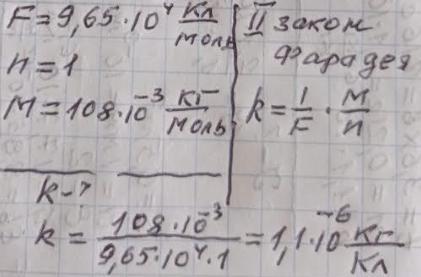 F = 9,65·10⁴ Кл/моль
n = 1
M = 108·10⁻³ кг/моль
k - ?
II закон
Фарадея
k = 1/F · M/n
k = 108·10⁻³/9,65·10⁴·1 = 1,1·10⁻⁶ кг/Кл